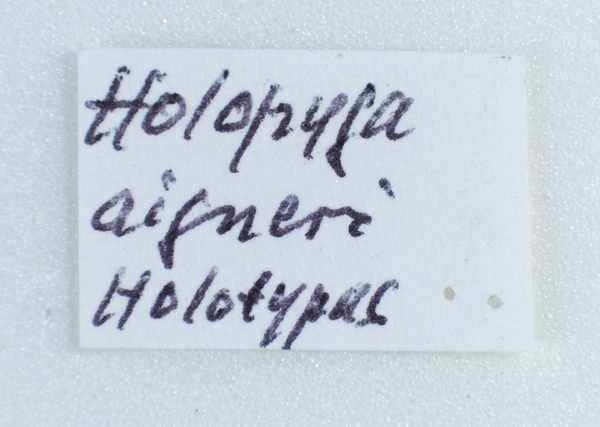 Holopyga
aigneri
Holotypus